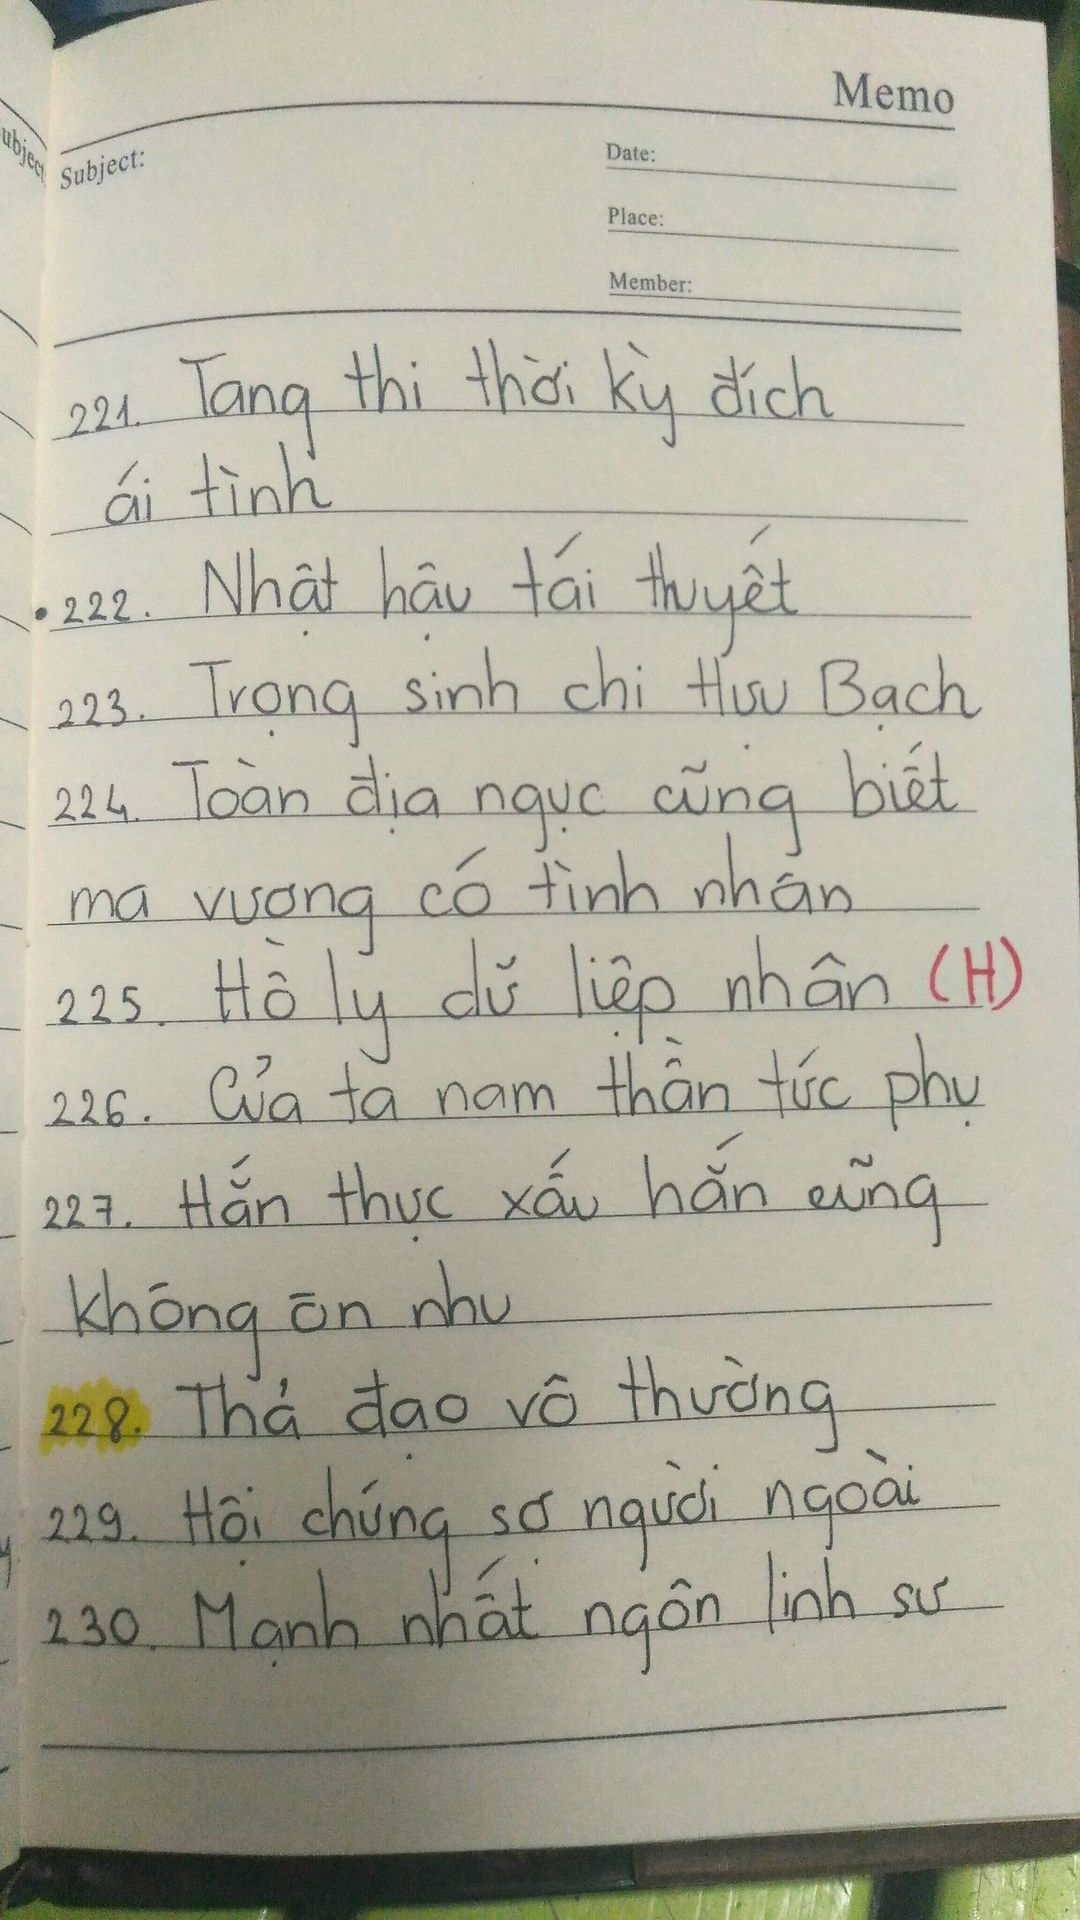 Memo
ubject
Subject:
Date:
Place:
Member:
221. Tang thi thời kỳ đích
ái tình
• 222. Nhật hậu tái thuyết
223. Trọng sinh chi Hưu Bạch
224. Toàn địa ngục cũng biết
ma vương có tình nhân
225. Hồ ly dữ liệp nhân (H)
226. Của ta nam thần tức phụ
227. Hắn thực xấu hắn cũng
không ôn nhu
228. Thả đạo vô thường
229. Hội chứng sợ người ngoài
230. Mạnh nhất ngôn linh sư